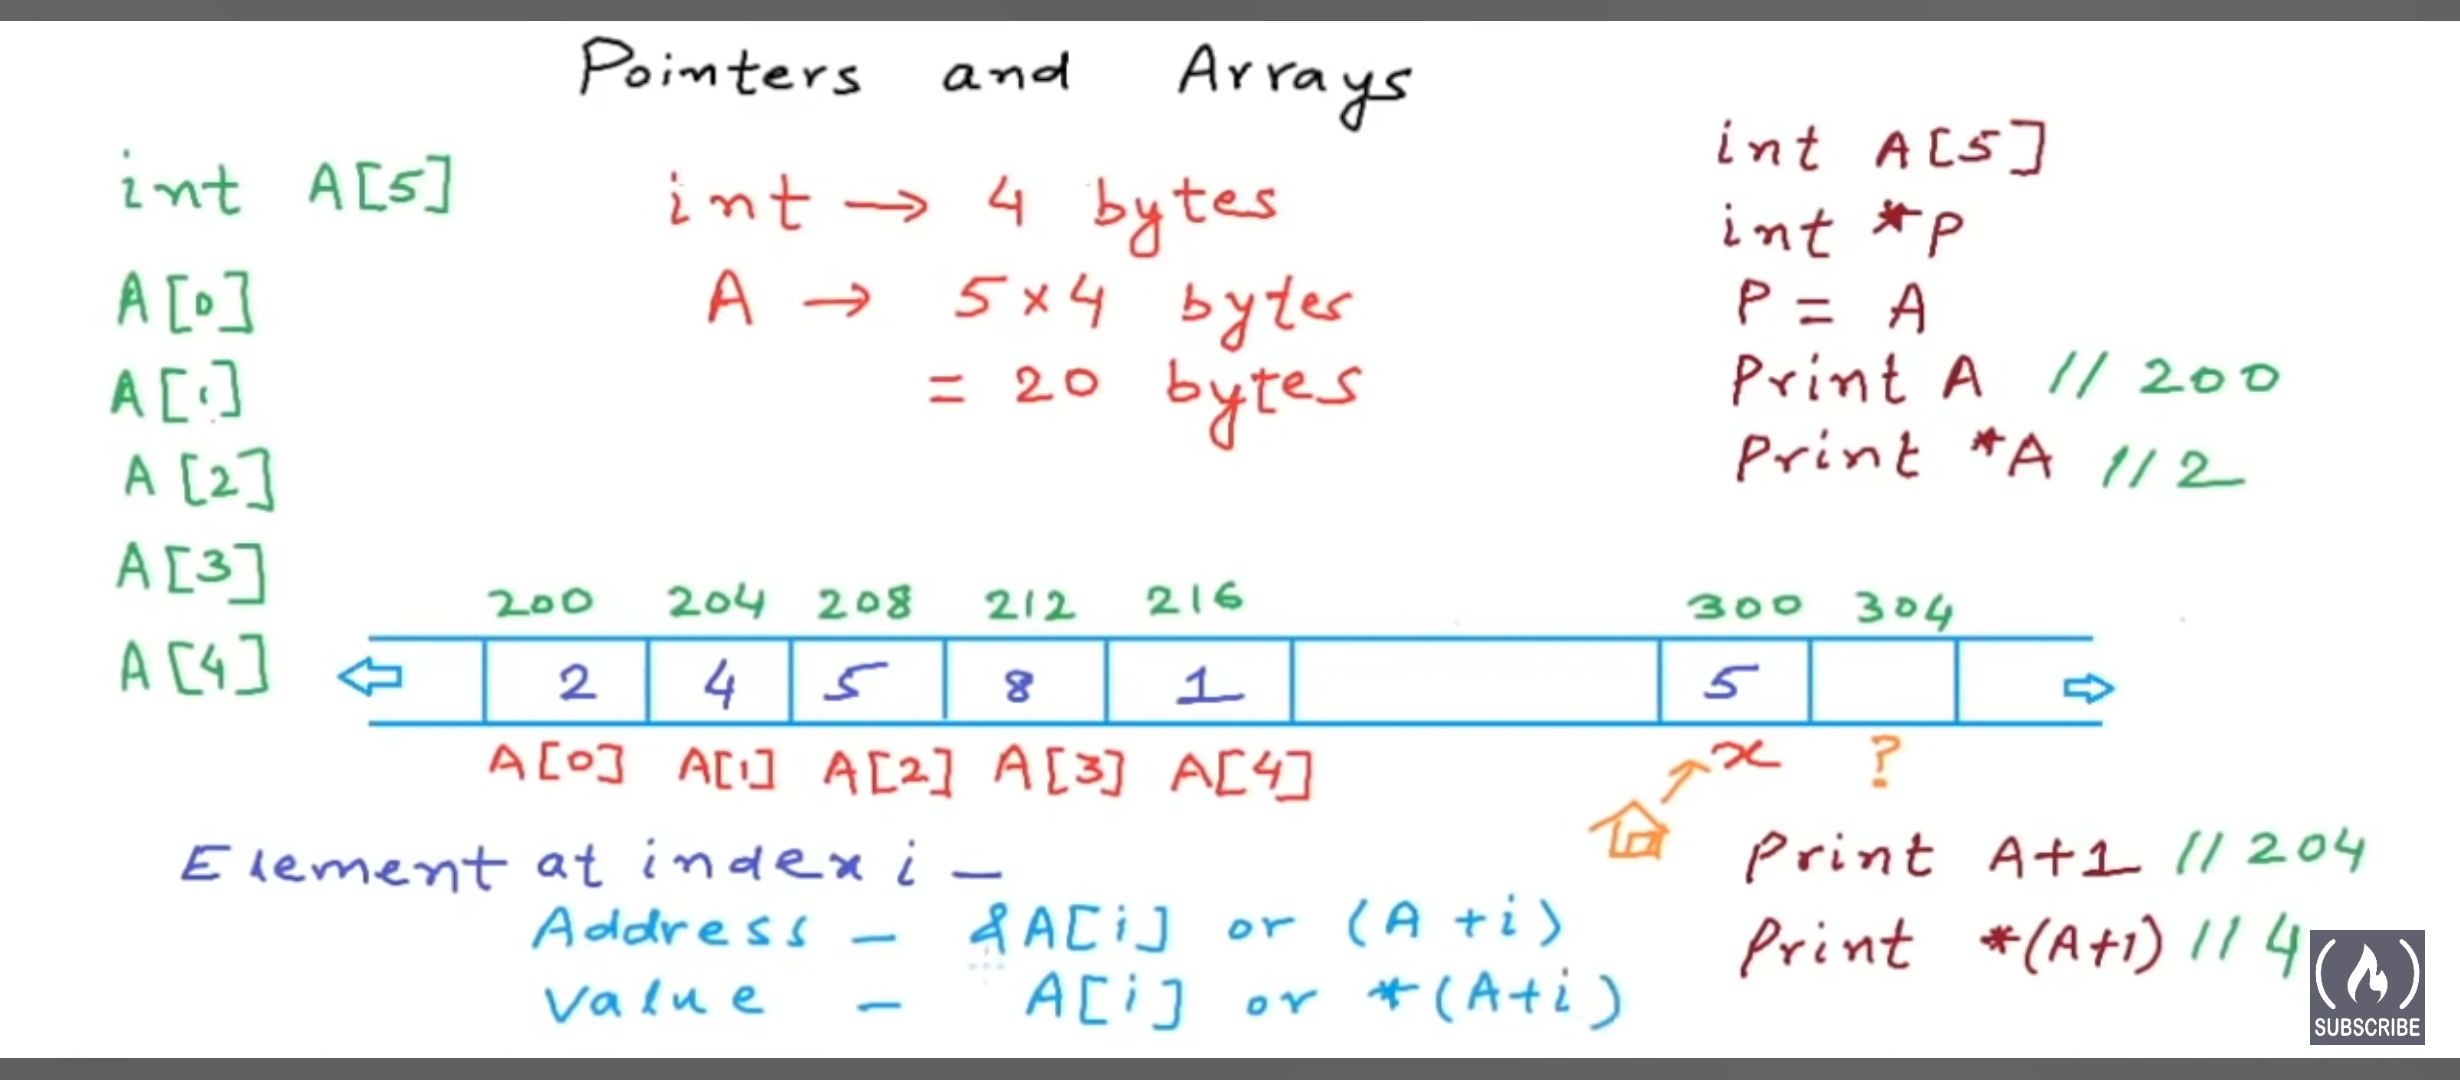 Pointers and Arrays
int A[5]
A[0]
A[1]
A[2]
A[3]
A[4]
int → 4 bytes
A → 5×4 bytes
= 20 bytes
int A[5]
int *P
P = A
Print A // 200
Print *A // 2
200 204 208 212 216 300 304
2 4 5 8 1 5
A[0] A[1] A[2] A[3] A[4] x ?
Element at index i –
Address – &A[i] or (A+i)
Value – A[i] or *(A+i)
Print A+1 // 204
Print *(A+1) // 4
SUBSCRIBE